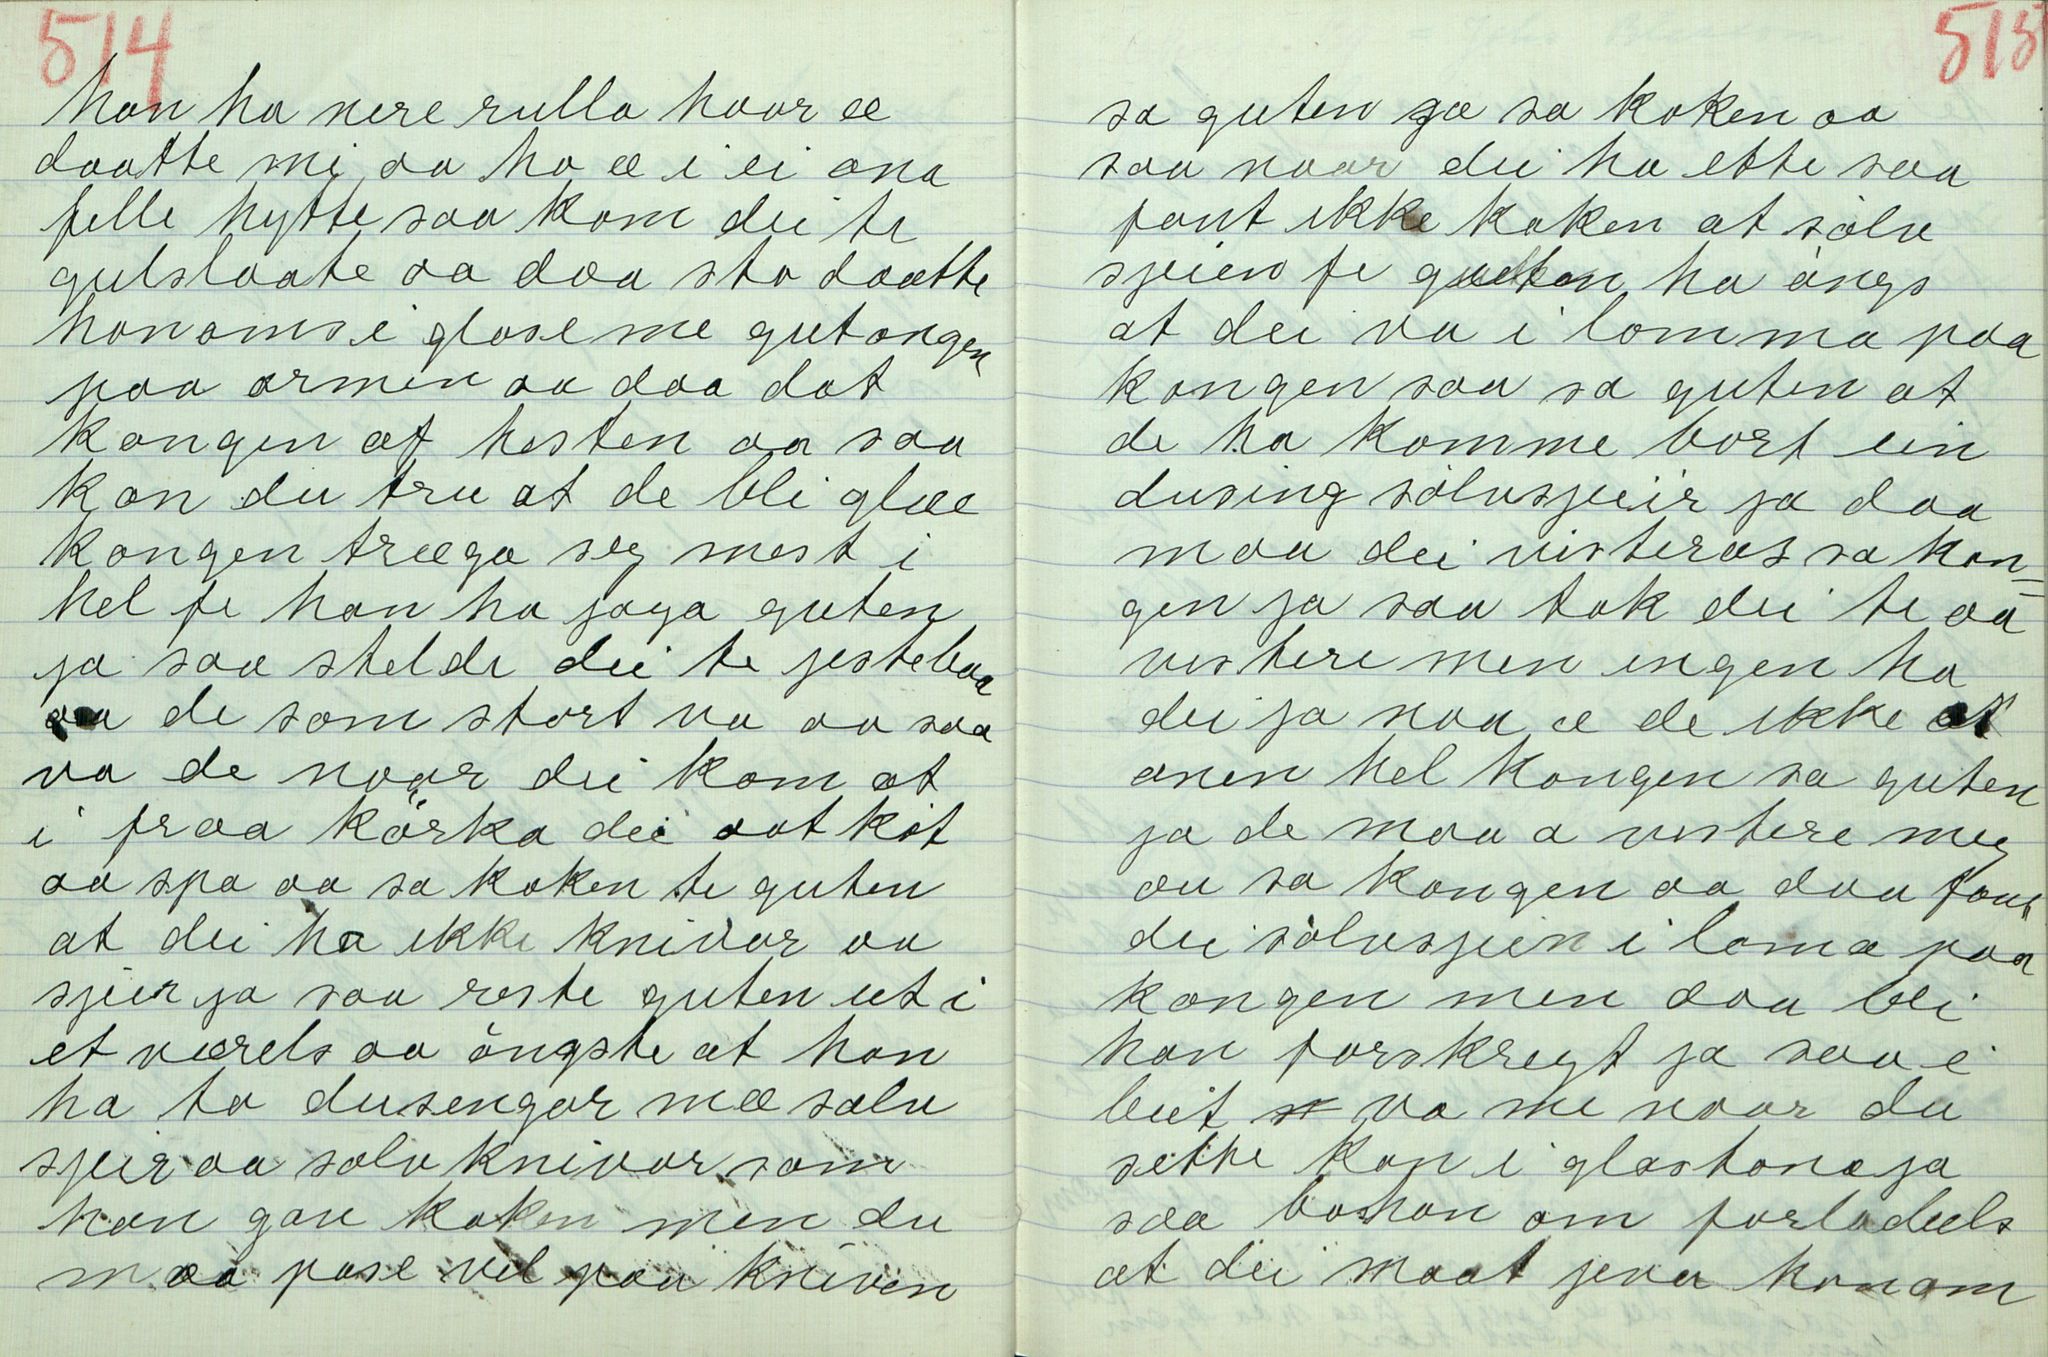 514
han ha nere rulla haar æ
daatte mi aa ho æ i ei ana
fille hytte saa kom dei te
gulslaate aa daa sto daatte
hanoms i glase me gutongen
paa armen aa daa dat
kongen af hesten aa saa
kan du tru at de blei glæe
kongen træga seg mest i
hel fe han ha jaga guten
ja saa stelde dei te jestebaa
aa de som stort va aa saa
va de naar dei kom at
i fraa körka dei aat kjöt
aa spa aa sa koken te guten
at dei ha ikke knivar aa
sjeir ja saa reste guten ut i
et værels aa öngste at han
ha to dusengar mæ sölv
sjeir aa sölv knivar som
han gav koken men du
maa pase vel paa kniven
515
sa guten ja sa koken aa
saa naar dei ha ette saa
fant ikke koken at sölv
sjeien fe guten ha öngs
at dei va i lomma paa
kongen saa sa guten at
de ha komme bort ein
dusing sölvsjeir ja daa
maa dei visteras sa kon=
gen ja saa tok dei te aa
vistere men ingen ha
dei ja naa æ de ikke at
anen hel kongen sa guten
ja de maa a vistere meg
au sa kongen aa daa fant
dei sölvsjein i loma paa
kongen men daa blei
han forskregt ja saa ei
leit va me naar du
sette kon i glastona ja
saa ba han om forladels
at dei maat jeva honom